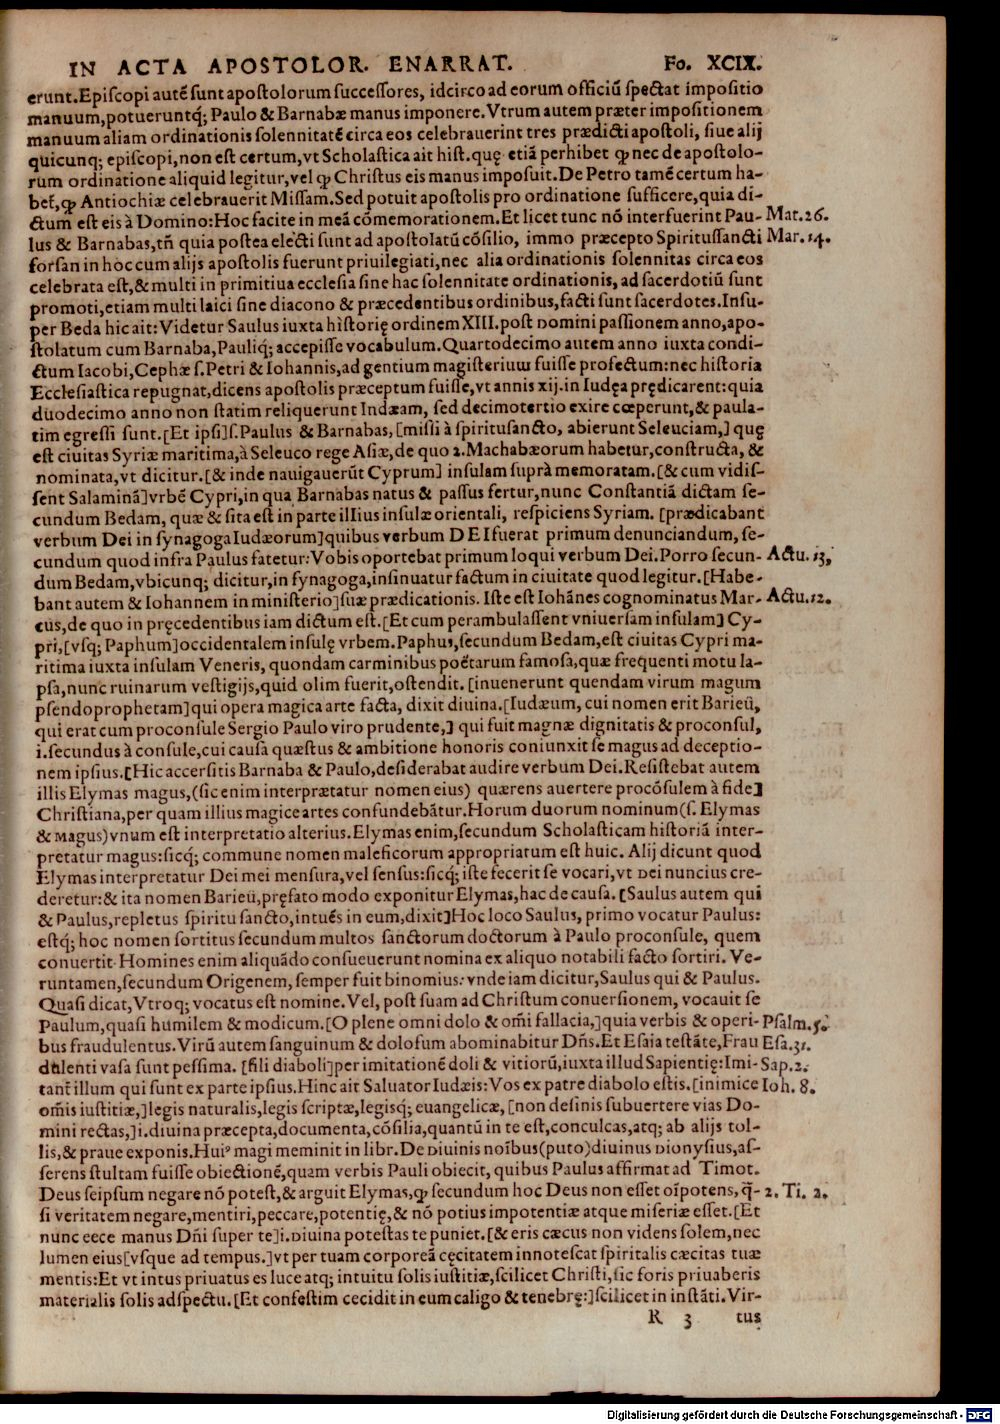 IN ACTA APOSTOLOR. ENARRAT. Fo. XCIX.
erunt. Episcopi autē sunt apostolorum successores, idcirco ad eorum officiū spectat impositio
manuum, potueruntq; Paulo & Barnabæ manus imponere. Vtrum autem præter impositionem
manuum aliam ordinationis solennitatē circa eos celebrauerint tres prædicti apostoli, siue alij
quicunq; episcopi, non est certum, vt Scholastica ait hist. quę etiā perhibet ꝙ nec de apostolo-
rum ordinatione aliquid legitur, vel ꝙ Christus eis manus imposuit. De Petro tamē certum ha-
bet, ꝙ Antiochiæ celebrauerit Missam. Sed potuit apostolis pro ordinatione sufficere, quia di-
ctum est eis à Domino: Hoc facite in meā cōmemorationem. Et licet tunc nō interfuerint Pau- Mat. 26.
lus & Barnabas, tñ quia postea electi sunt ad apostolatū cōsilio, immo præcepto Spiritussancti Mar. 14.
forsan in hoc cum alijs apostolis fuerunt priuilegiati, nec alia ordinationis solennitas circa eos
celebrata est, & multi in primitiua ecclesia sine hac solennitate ordinationis, ad sacerdotiū sunt
promoti, etiam multi laici sine diacono & præcedentibus ordinibus, facti sunt sacerdotes. Insu-
per Beda hic ait: Videtur Saulus iuxta historię ordinem XIII. post Domini passionem anno, apo-
stolatum cum Barnaba, Pauliq; accepisse vocabulum. Quartodecimo autem anno iuxta condi-
ctum Iacobi, Cephæ s. Petri & Iohannis, ad gentium magisterium fuisse profectum: nec historia
Ecclesiastica repugnat, dicens apostolis præceptum fuisse, vt annis xij. in Iudęa prędicarent: quia
duodecimo anno non statim reliquerunt Iudæam, sed decimotertio exire cœperunt, & paula-
tim egressi sunt. [Et ipsi] s. Paulus & Barnabas, [missi à spiritusancto, abierunt Seleuciam,] quę
est ciuitas Syriæ maritima, à Seleuco rege Asiæ, de quo 2. Machabæorum habetur, constructa, &
nominata, vt dicitur. [& inde nauigauerūt Cyprum] insulam suprà memoratam. [& cum vidis-
sent Salaminā] vrbē Cypri, in qua Barnabas natus & passus fertur, nunc Constantiā dictam se-
cundum Bedam, quæ & sita est in parte illius insulæ orientali, respiciens Syriam. [prædicabant
verbum Dei in synagoga Iudæorum] quibus verbum DEI fuerat primum denunciandum, se-
cundum quod infra Paulus fatetur: Vobis oportebat primum loqui verbum Dei. Porro secun- Actu. 13,
dum Bedam, vbicunq; dicitur, in synagoga, insinuatur factum in ciuitate quod legitur. [Habe-
bant autem & Iohannem in ministerio] suæ prædicationis. Iste est Iohānes cognominatus Mar- Actu. 12.
cus, de quo in pręcedentibus iam dictum est. [Et cum perambulassent vniuersam insulam] Cy-
pri, [vsq; Paphum] occidentalem insulę vrbem. Paphus, secundum Bedam, est ciuitas Cypri ma-
ritima iuxta insulam Veneris, quondam carminibus poëtarum famosa, quæ frequenti motu la-
psa, nunc ruinarum vestigijs, quid olim fuerit, ostendit. [inuenerunt quendam virum magum
pseudoprophetam] qui opera magica arte facta, dixit diuina. [Iudæum, cui nomen erit Barieū,
qui erat cum proconsule Sergio Paulo viro prudente,] qui fuit magnæ dignitatis & proconsul,
i. secundus à consule, cui causa quæstus & ambitione honoris coniunxit se magus ad deceptio-
nem ipsius. [Hic accersitis Barnaba & Paulo, desiderabat audire verbum Dei. Resistebat autem
illis Elymas magus, (sic enim interprætatur nomen eius) quærens auertere procōsulem à fide]
Christiana, per quam illius magice artes confundebātur. Horum duorum nominum (s. Elymas
& magus) vnum est interpretatio alterius. Elymas enim, secundum Scholasticam historiā inter-
pretatur magus: sicq; commune nomen maleficorum appropriatum est huic. Alij dicunt quod
Elymas interpretatur Dei mei mensura, vel sensus: sicq; iste fecerit se vocari, vt Dei nuncius cre-
deretur: & ita nomen Barieū, pręfato modo exponitur Elymas, hac de causa. [Saulus autem qui
& Paulus, repletus spiritu sancto, intuēs in eum, dixit] Hoc loco Saulus, primo vocatur Paulus:
estq; hoc nomen sortitus secundum multos sanctorum doctorum à Paulo proconsule, quem
conuertit. Homines enim aliquādo consueuerunt nomina ex aliquo notabili facto sortiri. Ve-
runtamen, secundum Origenem, semper fuit binomius: vnde iam dicitur, Saulus qui & Paulus.
Quasi dicat, Vtroq; vocatus est nomine. Vel, post suam ad Christum conuersionem, vocauit se
Paulum, quasi humilem & modicum. [O plene omni dolo & om̄i fallacia,] quia verbis & operi- Psalm. 5.
bus fraudulentus. Virū autem sanguinum & dolosum abominabitur Dñs. Et Esaia testāte, Frau Esa. 31.
dulenti vasa sunt pessima. [fili diaboli] per imitationē doli & vitiorū, iuxta illud Sapientię: Imi- Sap. 2.
tant illum qui sunt ex parte ipsius. Hinc ait Saluator Iudæis: Vos ex patre diabolo estis. [inimice Ioh. 8.
om̄is iustitiæ,] legis naturalis, legis scriptæ, legisq; euangelicæ, [non desinis subuertere vias Do-
mini rectas,] i. diuina præcepta, documenta, cōsilia, quantū in te est, conculcas, atq; ab alijs tol-
lis, & praue exponis. Huiꝰ magi meminit in libr. De Diuinis noībus (puto) diuinus Dionysius, as-
serens stultam fuisse obiectionē, quam verbis Pauli obiecit, quibus Paulus affirmat ad Timot.
Deus seipsum negare nō potest, & arguit Elymas, ꝙ secundum hoc Deus non esset oīpotens, q̄- 2. Ti. 2.
si veritatem negare, mentiri, peccare, potentię, & nō potius impotentiæ atque miseriæ esset. [Et
nunc ecce manus Dñi super te] i. Diuina potestas te puniet. [& eris cæcus non videns solem, nec
lumen eius [vsque ad tempus.] vt per tuam corporeā cęcitatem innotescat spiritalis cæcitas tuæ
mentis: Et vt intus priuatus es luce atq; intuitu solis iustitiæ, scilicet Christi, sic foris priuaberis
materialis solis adspectu. [Et confestim cecidit in eum caligo & tenebrę:] scilicet in instāti. Vir-
R 3 tus
Digitalisierung gefördert durch die Deutsche Forschungsgemeinschaft - DFG